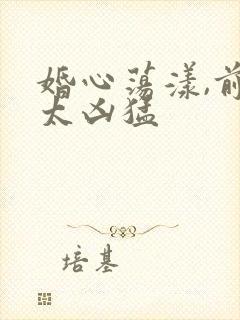 婚心荡漾,前
太凶猛
培基